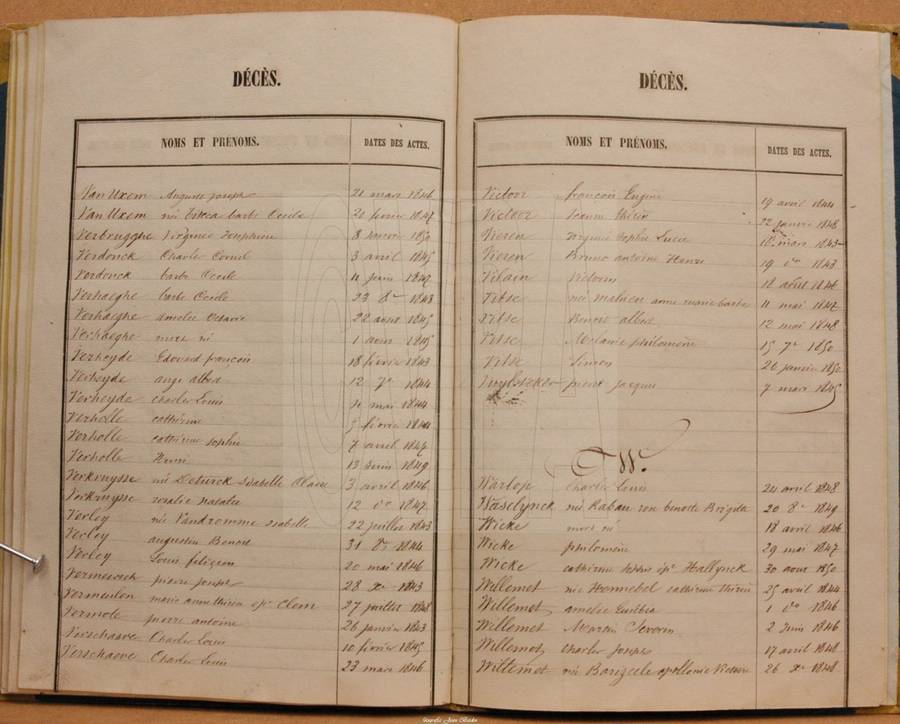 DÉCÈS.
NOMS ET PRÉNOMS. DATES DES ACTES.
Van Uxem Auguste Joseph 21 mars 1846
Van Uxem née barbe Cecile 20 fevrier 1847
Verbrugghe Virginie Josephine 8 janvier 1850
Verdonck Charle Corneil 3 avril 1845
Verdonck barbe Cecile 11 juin 1849
Verhaeghe barbe Cecile 23 8re 1843
Verhaeghe amelie Octavie 22 aout 1845
Verhaeghe mort né 1 aout 1845
Verheyde Edouard françois 18 fevrier 1843
Verheyde ange albert 12 7re 1844
Verheyde Charles Louis 4 mai 1844
Verholle catherine 5 fevrier 1844
Verholle catherine sophie 7 avril 1847
Verholle Henri 13 juin 1849
Verkruysse née Deturck Isabelle Claire 3 avril 1846
Verkruysse rosalie natalie 12 do 1847
Verley née Vandromme isabelle 22 juillet 1843
Verley augustin Benoit 31 8re 1844
Verley Louis 20 mai 1846
Vermeersch pierre joseph 28 Xe 1843
Vermeulen marie anne thérèse epe Clem 27 juillet 1848
Vermote pierre antoine 26 janvier 1843
Verschaeve Charles Louis 10 fevrier 1845
Verschaeve Charles Louis 23 mars 1846
DÉCÈS.
NOMS ET PRÉNOMS. DATES DES ACTES.
Victoor françois Eugène 19 avril 1844
Victoor Jeanne thérèse 22 janvier 1848
Vieren virginie Sophie Lucie 16 mars 1843
Vieren Bruno antoine Henri 19 do 1843
Vilain Victorine 18 aout 1844
Vitse née Mahieu anne marie barbe 11 mai 1847
Vitse Benoit albert 12 mai 1848
Vitse Melanie philomene 15 7re 1850
Vitse Simon 20 janvier 1850
pierre Jacques 7 mars 1845
W.
Warlop Charles Louis 24 avril 1848
Waselynck née Rabau benoite Brigitte 20 8re 1849
Wicke mort né 18 avril 1846
Wicke philomène 29 mai 1847
Wicke catherine epe Hallynck 30 aout 1850
Willemot née Honnebel catherine thérèse 25 avril 1844
Willemot amelie 1 do 1846
Willemot Severin 2 juin 1846
Willemot charles Joseph 17 avril 1848
Willemot née apollonie Victoire 26 Xe 1848